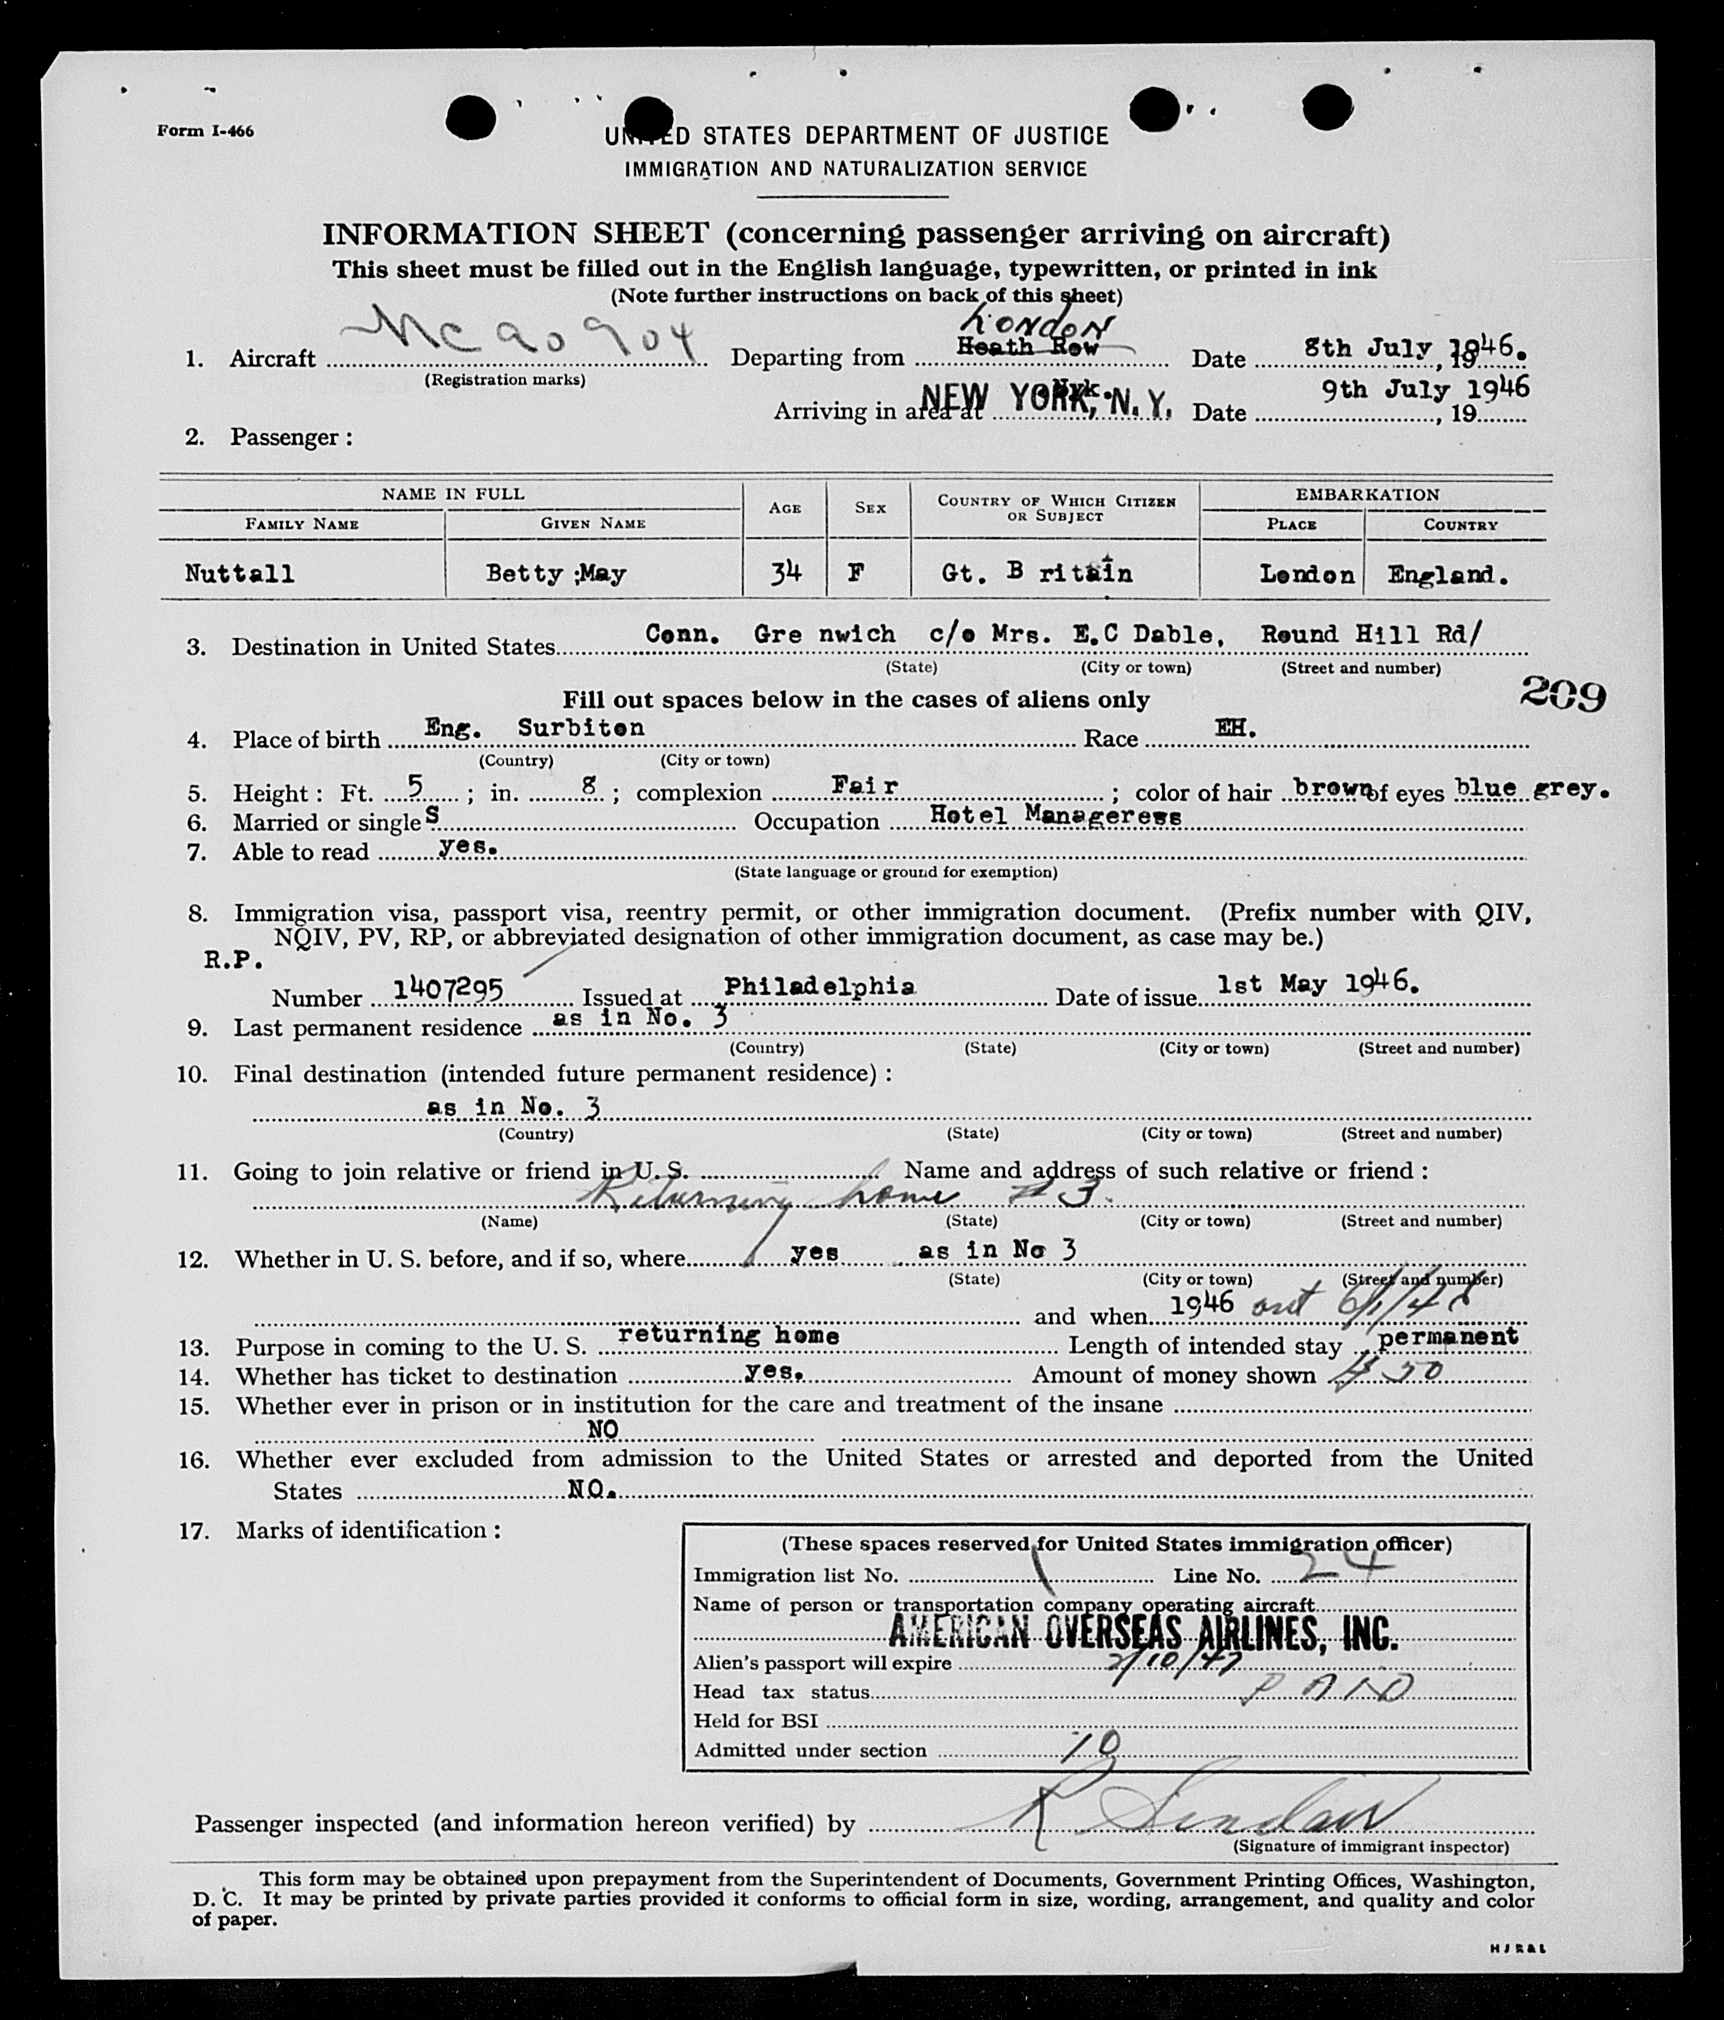 Form I-466
UNITED STATES DEPARTMENT OF JUSTICE
IMMIGRATION AND NATURALIZATION SERVICE
INFORMATION SHEET (concerning passenger arriving on aircraft)
This sheet must be filled out in the English language, typewritten, or printed in ink
(Note further instructions on back of this sheet)
London
1. Aircraft NC 90904 Departing from Heath Row Date 8th July, 1946.
(Registration marks)
Arriving in area at NEW YORK, N.Y. Date 9th July 1946, 19
2. Passenger :
NAME IN FULL AGE SEX COUNTRY OF WHICH CITIZEN OR SUBJECT EMBARKATION
FAMILY NAME GIVEN NAME PLACE COUNTRY
Nuttall Betty ;May 34 F Gt. B ritain London England.
3. Destination in United States Conn. Gre nwich c/o Mrs. E.C Dable, Round Hill Rd/
(State) (City or town) (Street and number)
Fill out spaces below in the cases of aliens only 209
4. Place of birth Eng. Surbiton Race EH.
(Country) (City or town)
5. Height : Ft. 5 ; in. 8 ; complexion Fair ; color of hair brown of eyes blue grey.
6. Married or single S Occupation Hotel Manageress
7. Able to read yes.
(State language or ground for exemption)
8. Immigration visa, passport visa, reentry permit, or other immigration document. (Prefix number with QIV,
NQIV, PV, RP, or abbreviated designation of other immigration document, as case may be.)
R.P.
Number 1407295 Issued at Philadelphia Date of issue 1st May 1946.
9. Last permanent residence as in No. 3
(Country) (State) (City or town) (Street and number)
10. Final destination (intended future permanent residence) :
as in No. 3
(Country) (State) (City or town) (Street and number)
11. Going to join relative or friend in U. S. Name and address of such relative or friend :
Returning home # 3.
(Name) (State) (City or town) (Street and number)
12. Whether in U. S. before, and if so, where yes as in No 3
(State) (City or town) (Street and number)
and when 1946 out
13. Purpose in coming to the U. S. returning home Length of intended stay permanent
14. Whether has ticket to destination yes. Amount of money shown $ 50
15. Whether ever in prison or in institution for the care and treatment of the insane
NO
16. Whether ever excluded from admission to the United States or arrested and deported from the United
States NO.
17. Marks of identification :
(These spaces reserved for United States immigration officer)
Immigration list No. 1 Line No. 24
Name of person or transportation company operating aircraft
AMERICAN OVERSEAS AIRLINES, INC.
Alien's passport will expire 2/10/47
Head tax status PAID
Held for BSI
Admitted under section 10
Passenger inspected (and information hereon verified) by R Sinclair
(Signature of immigrant inspector)
This form may be obtained upon prepayment from the Superintendent of Documents, Government Printing Offices, Washington,
D. C. It may be printed by private parties provided it conforms to official form in size, wording, arrangement, and quality and color
of paper.
HJR&L